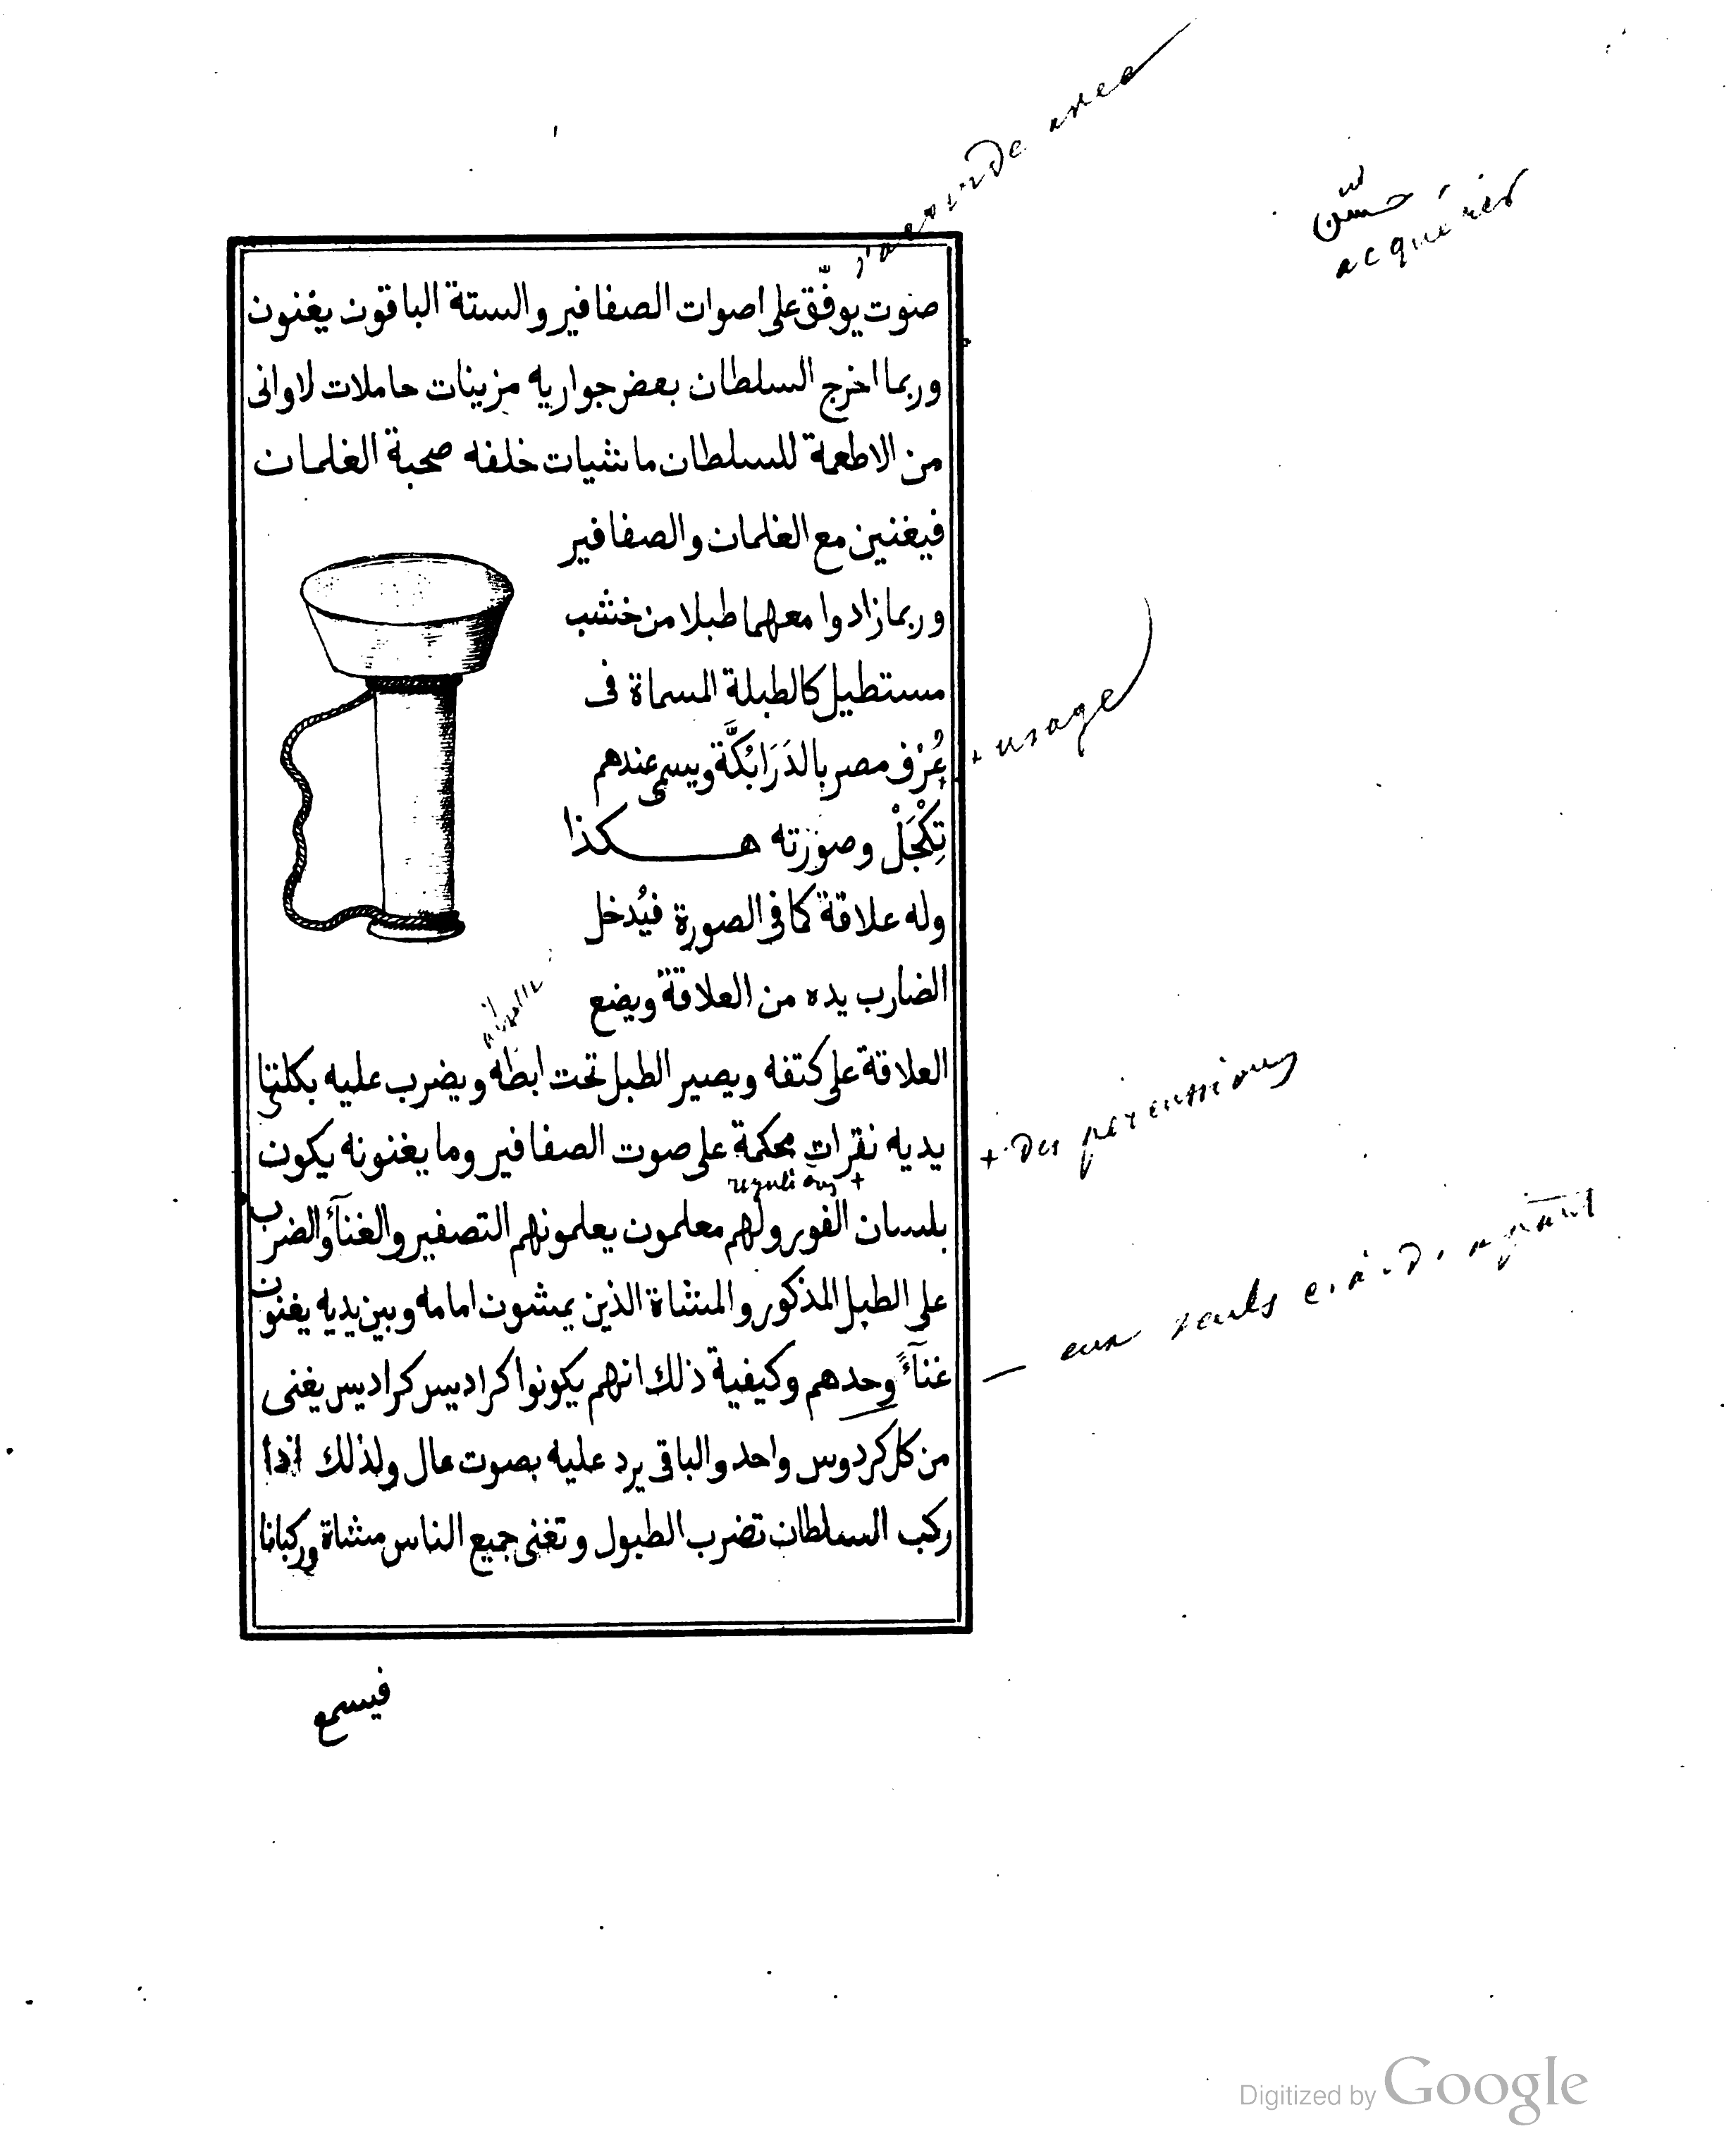 s'accorde avec
حسّن
acquérir
صوت يوفّق على اصوات الصفافير والستة الباقون يغنون
وربما اخرج السلطان بعض جواريه مزينات حاملات لاوانى
من الاطعمة للسلطان ماشيات خلفه صحبة الغلمان
فيغنين مع الغلمان والصفافير
وربما زادوا معهما طبلا من خشب
مستطيل كالطبلة المسماة فى
عُرْف مصر بالدَرَابُكَّة ويسمى عندهم
+ usage
تِكْجَلْ وصورته هكذا
وله علاقة كما فى الصورة فيُدخل
الضارب يده من العلاقة ويضع
العلاقة على كتفه ويصير الطبل تحت ابطه ويضرب عليه بكلتى
يديه نقرات محكمة على صوت الصفافير وما يغنونه يكون
+ des percussions
+
بلسان الفور ولهم معلمون يعلمونهم التصفير والغنآء والضرب
على الطبل المذكور والمشاة الذين يمشون امامه وبين يديه يغنون
غنآءً وحدهم وكيفية ذلك انهم يكونوا كراديس كراديس يغنى
— eux seuls c. à. d.
من كل كردوس واحد والباقى يرد عليه بصوت عال ولذلك اذا
ركب السلطان تضرب الطبول وتغنى جميع الناس مشاة وركبانا
فيسمع
Digitized by Google